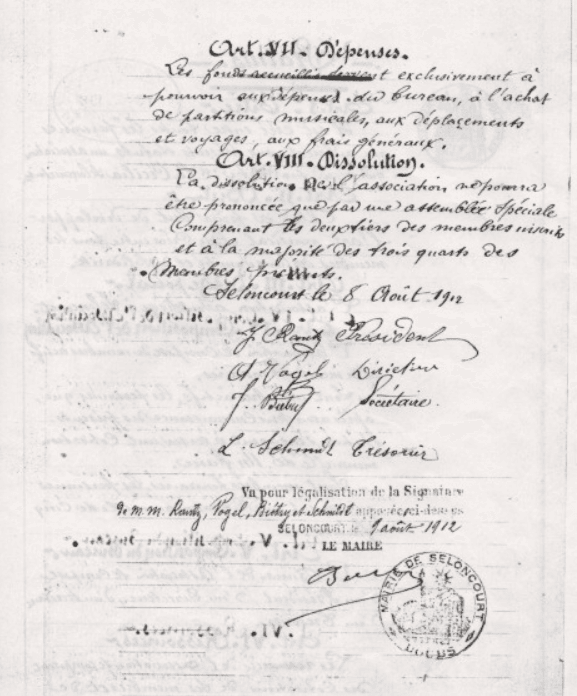 Art. VII. Dépenses.
Les fonds recueillis seront exclusivement à
pourvoir aux dépenses du bureau, à l'achat
de partitions musicales, aux déplacements
et voyages, aux frais généraux.
Art. VIII. Dissolution.
La dissolution de l'association ne pourra
être prononcée que par une assemblée spéciale
Comprenant les deux tiers des membres inscrits
et à la majorité des trois quarts des
membres présents.
Seloncourt le 8 Août 1912
J. Président
Vogel Directeur
J. Secrétaire
L Schmidt Trésorier
Vu pour légalisation de la Signature
de M.M. Vogel, Biétry et Schmidt apposée ci-dessus
SELONCOURT, le 9 août 1912
LE MAIRE
MAIRIE DE SELONCOURT
DOUBS